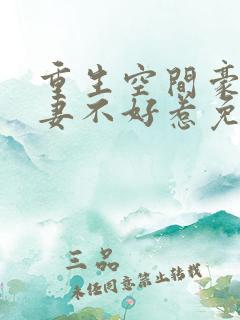 重生空間豪
妻不好惹免
三品
未经同意禁止转载